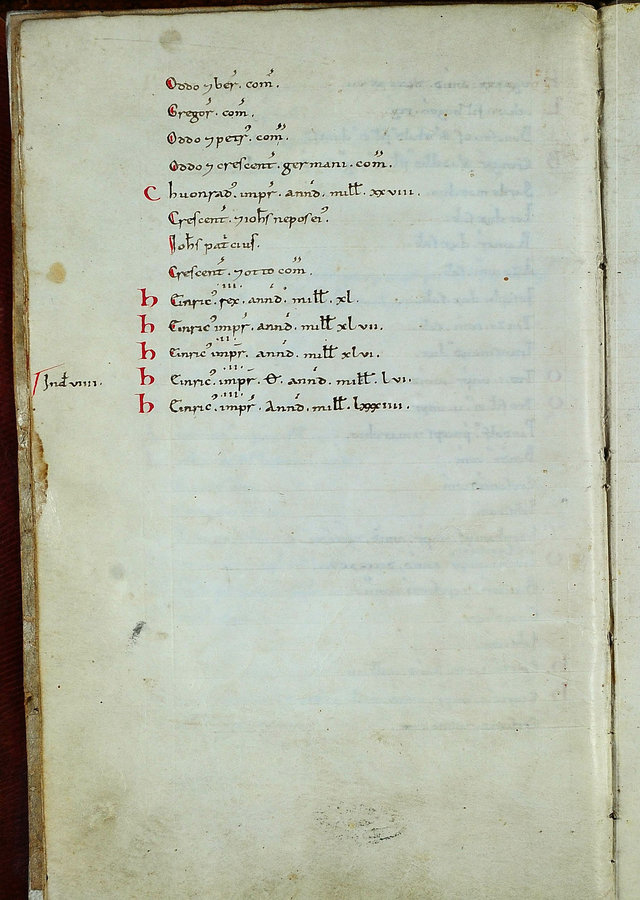 Oddo ⁊ ber̄. com̄.
Gregor̄. com̄.
Oddo ⁊ petr̄. com̄.
Oddo ⁊ crescent̄. germani. com̄.
C huonrad'. imp̄r. ann̄d. mill̄. xxviii.
Crescent̄. ⁊ ioh̄s nepos ei'.
Ioh̄s pat̄cius.
Crescent̄. ⁊ otto com̄.
h Einric'. rex. ann̄d. mill̄. xl.
h Einric' imp̄r. ann̄d. mill̄ xlvii.
h Einric' imp̄r. ann̄d. mill̄ xlvi.
Ind̄ viiii.
h Einric'. imp̄r. &. ann̄d. mill̄. lvi.
h Einric'. imp̄r. Ann̄d. mill̄. lxxxiiii.